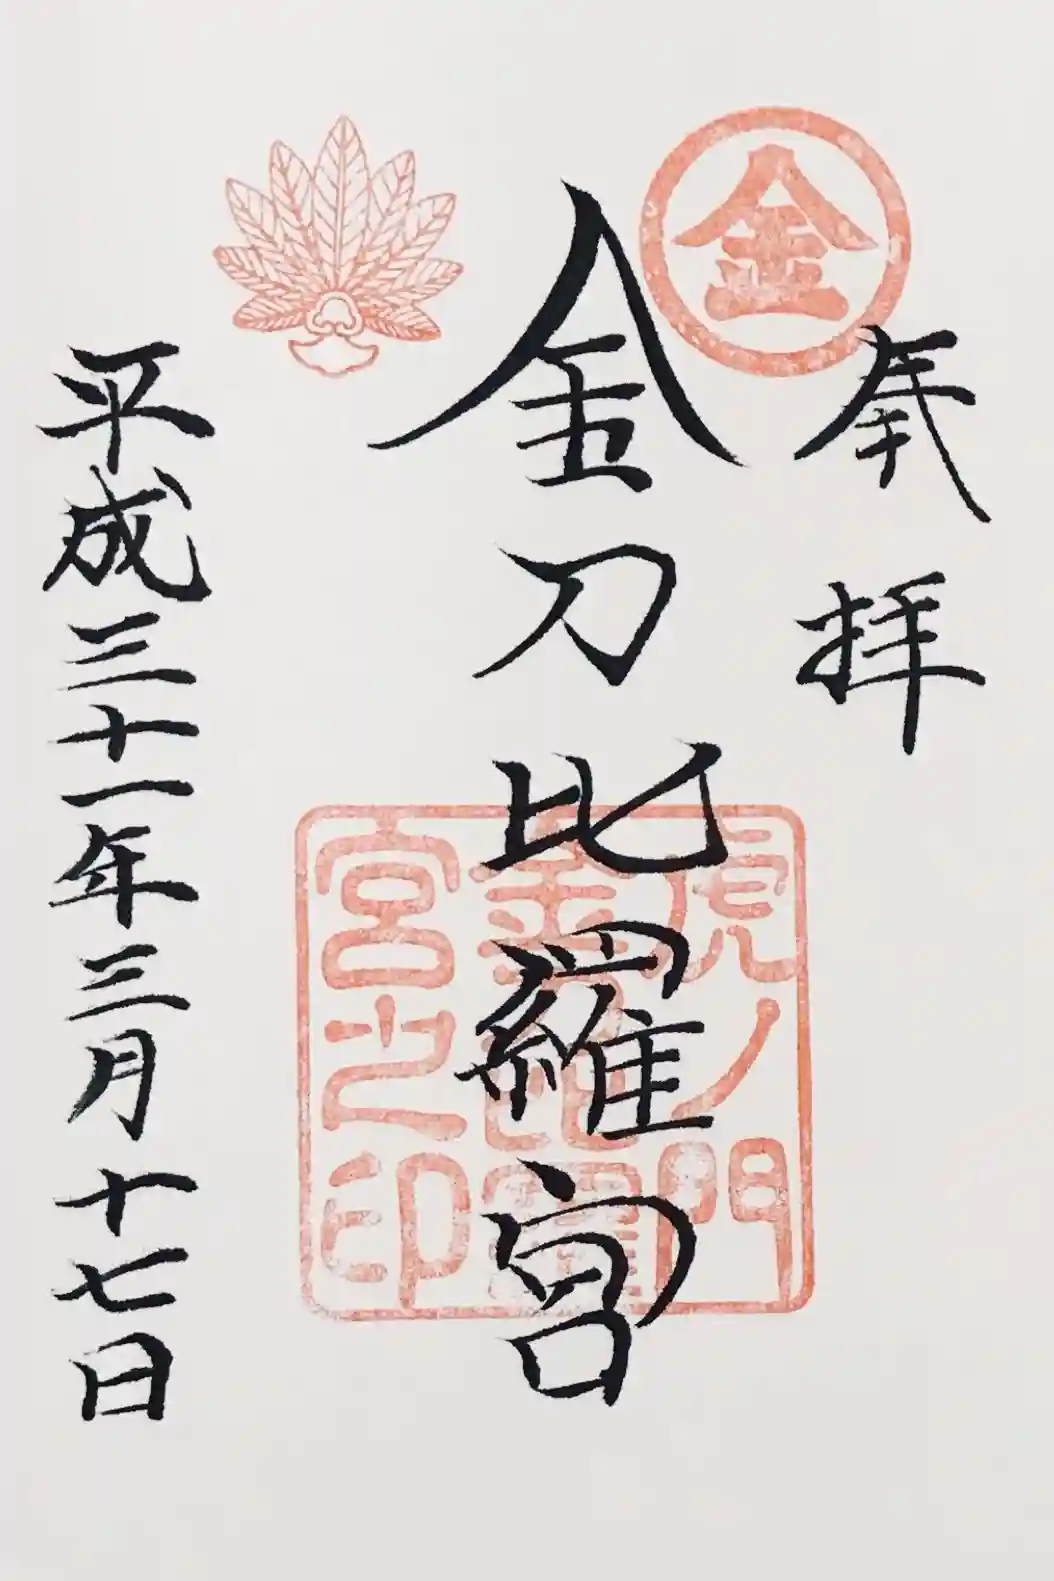 金
奉拝
金刀比羅宮
虎ノ門
金刀比羅
宮之印
平成三十一年三月十七日